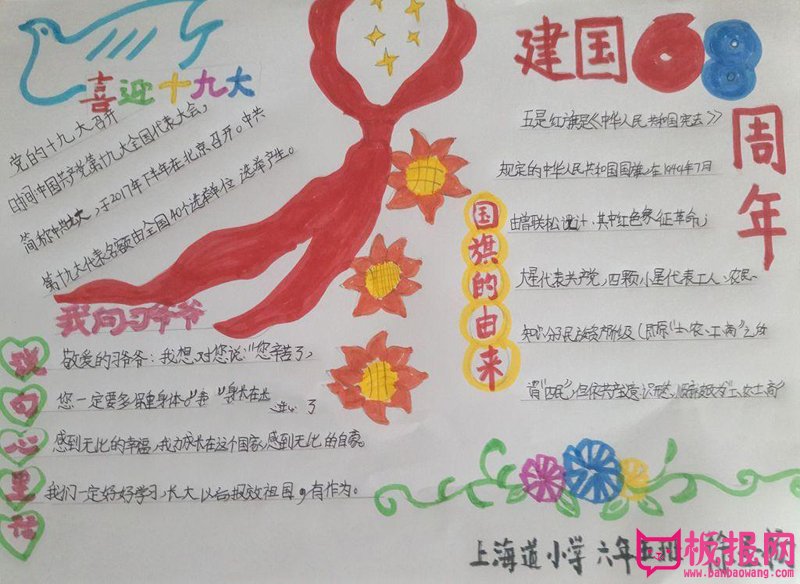 喜迎十九大
党的十九大召开
时间:中国共产党第十九次全国代表大会,
简称中共十九大,于2017年下半年在北京召开。中共
第十九大代表名额由全国40个选举单位选举产生。
我向习爷爷
说句心里话
敬爱的习爷爷:我想对您说:"您辛苦了,
您一定要多保重身体。
感到无比的幸福,我为成长在这个国家,感到无比的自豪。
我们一定好好学习,长大以后报效祖国,有作为。
建国68
周年
国旗的由来
五星红旗是《中华人民共和国宪法》
规定的中华人民共和国国旗,在1949年7月
由曾联松设计,其中红色象征革命;
大星代表共产党,四颗小星代表工人、农民、
上海道小学 六年五班
板报网
www.banbaowang.com